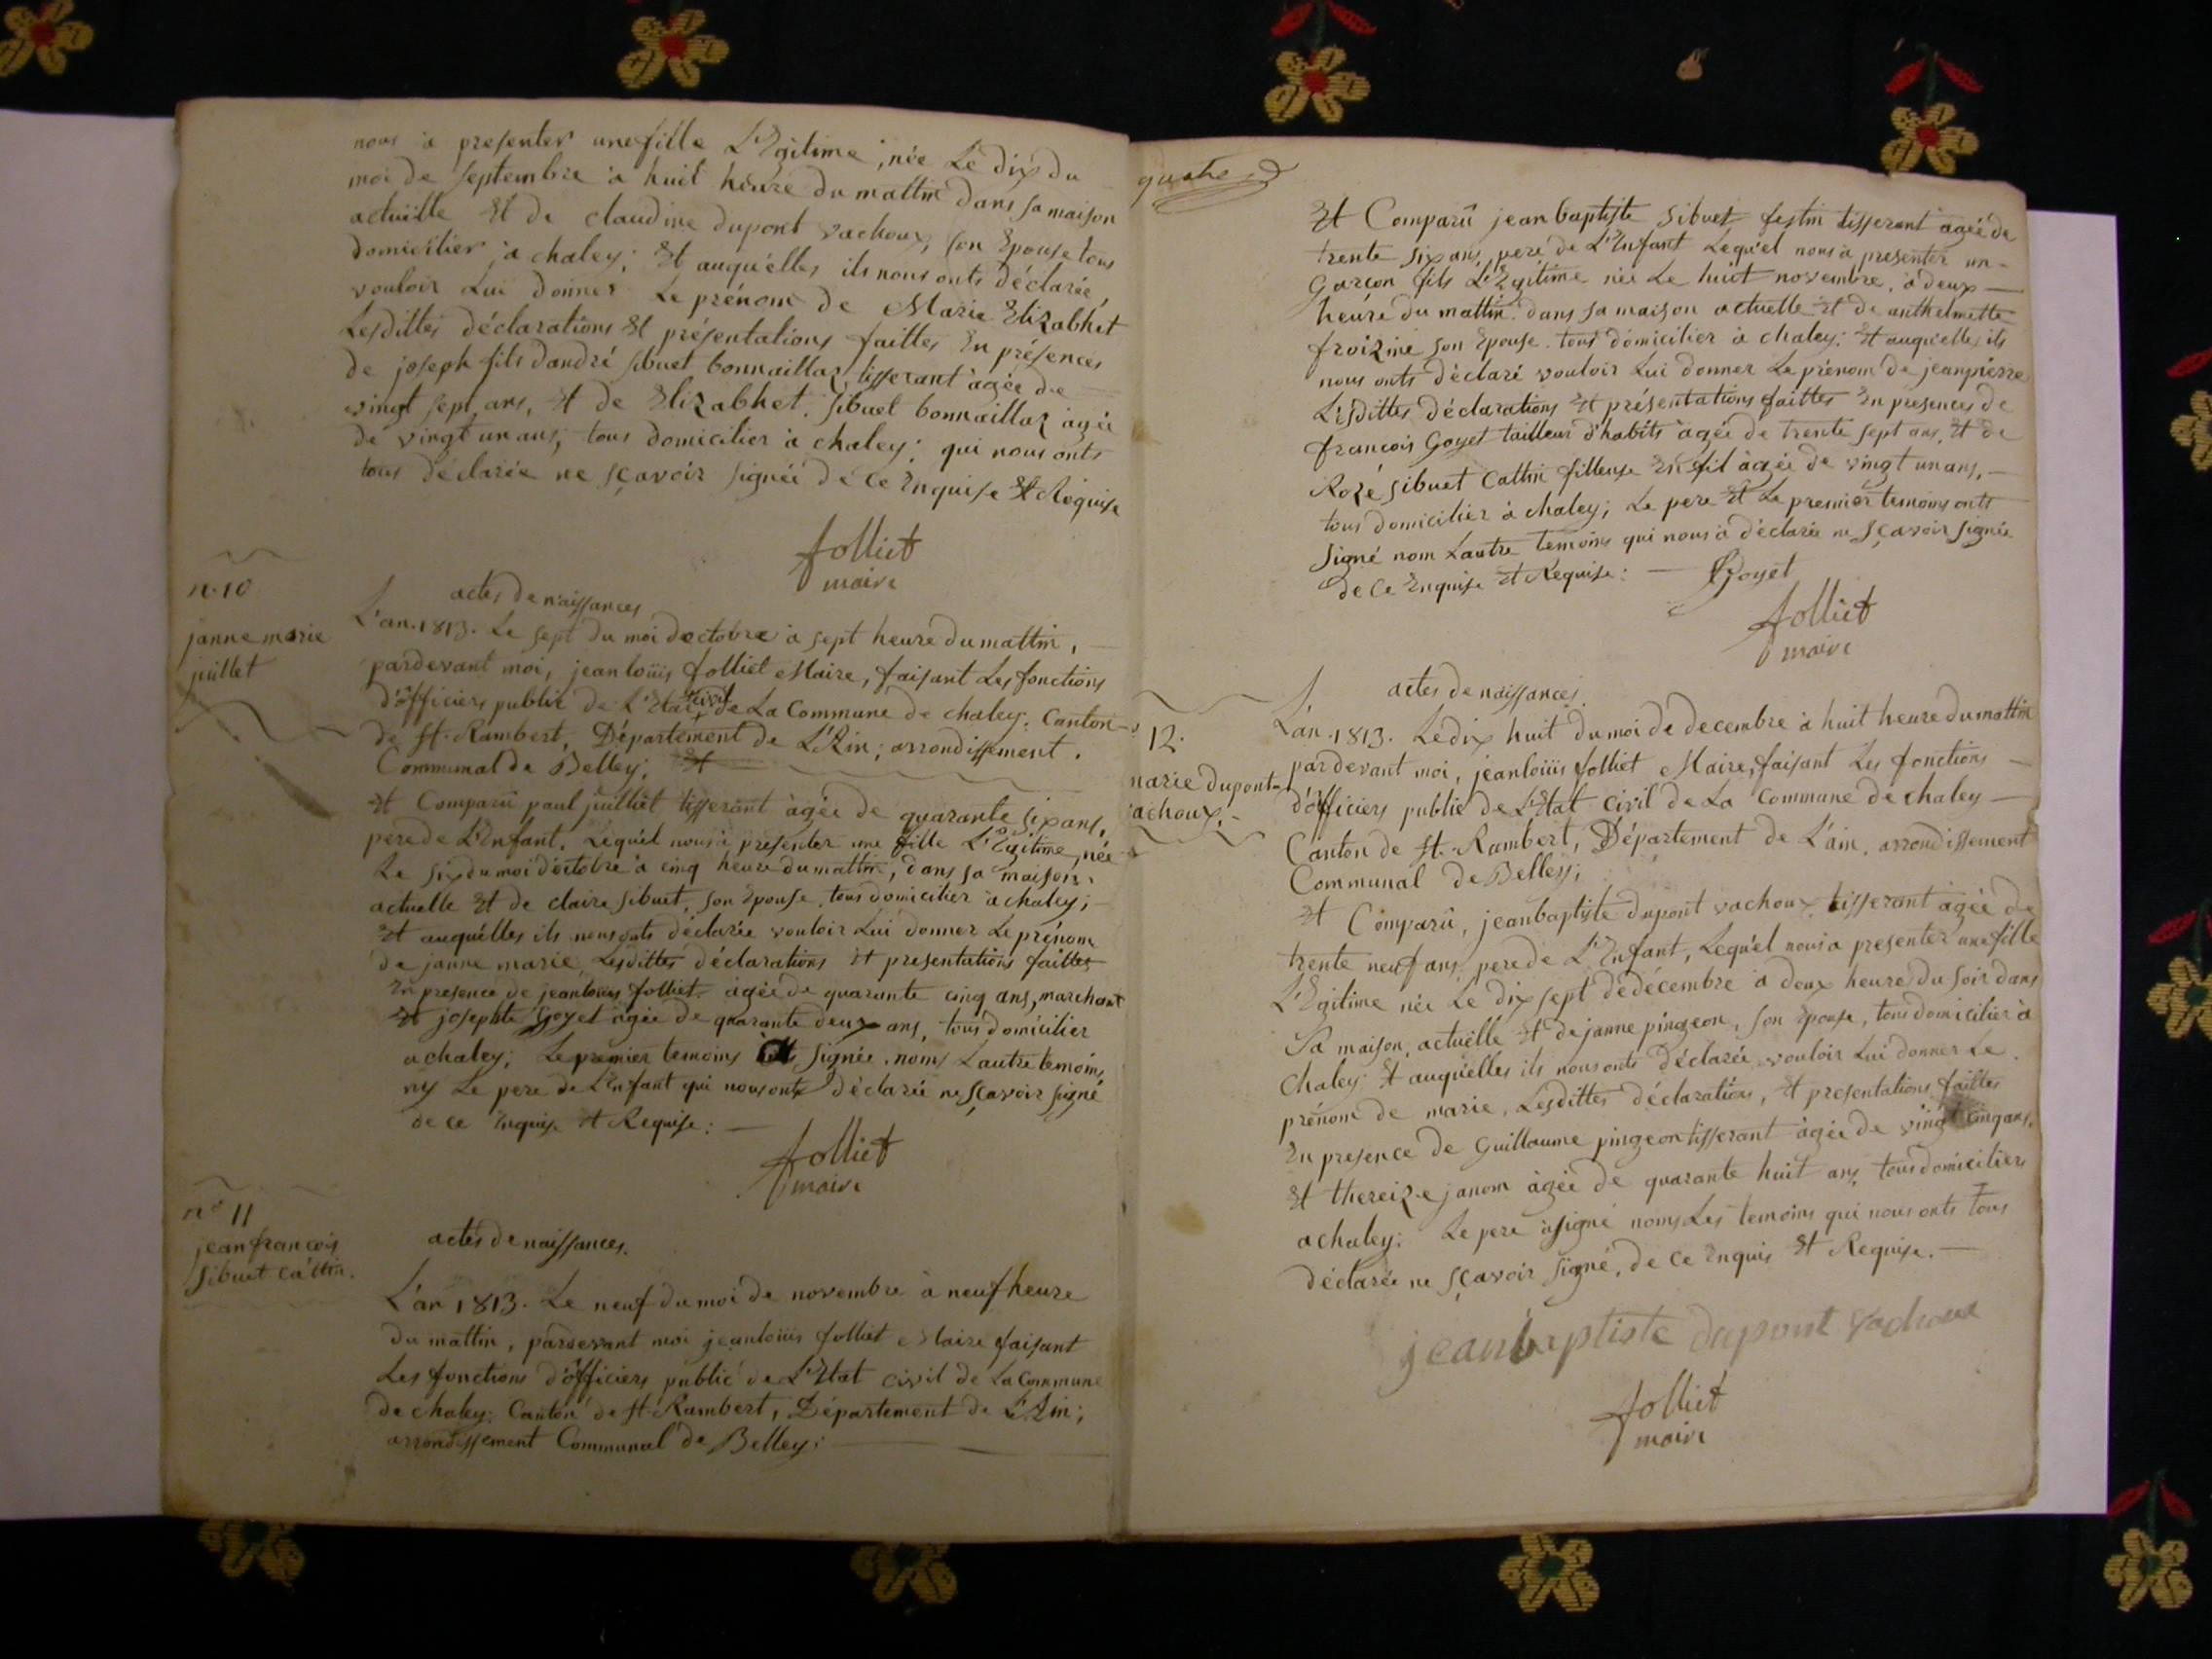 nous à presenter une fille L'Egitime, née Le dix du
moi de septembre à huit heure du mattin dans sa maison
actuëlle Et de claudine dupont vachoux, son Epouse tous
domicilier à chaley; Et auqu'elles ils nous onts déclarée,
vouloir Lui donner Le prénom de Marie Elizabhet
Lesdittes déclarations Et présentations faittes En présences
de joseph fils d'andré sibuet bonnaillaz, tisserant àgée de
vingt sept ans, Et de Elizabhet, sibuet bonnaillaz àgée
de vingt un ans; tous domicilier à chaley; qui nous onts
tous déclarée ne sçavoir signéé de ce Enquise Et Requise
folliet
maire
n. 10
janne marie
juillet
actes de naissances
L'an. 1813. Le sept du moi d'octobre à sept heure du mattin,
pardevant moi, jean loüis folliet Maire, faisant Les fonctions
d'officiers publié de L'Etat civil de La Commune de chaley, Canton
de St. Rambert, Département de L'Ain; arrondissement
Communal de Belley;
Et Comparû paul juilliet tisserant àgée de quarante six ans,
pere de L'Enfant, Lequ'el nous à presenter une fille L'Egitime, née
Le six du moi d'octobre à cinq heure du mattin, dans sa maison
actuelle Et de claire sibuet, son Epouse, tous domicilier à chaley;
Et auqu'elles ils nous onts déclarée vouloir Lui donner Le prénom
de janne marie, Lesdittes déclarations Et presentations faittes
En presence de jean louis folliet, àgée de quarante cinq ans, marchant
Et josephte Goyet àgée de quarante deux ans, tous domicilier
a chaley; Le premier temoins à signée, noms L'autre temoins
ny Le pere de L'Enfant qui nous onts déclarée ne sçavoir signé
de ce Enquise Et Requise: —
folliet
maire
n° 11
jean françois
sibuet cattin.
actes de naissances.
L'an 1813. Le neuf du moi de novembre à neuf heure
du mattin, pardevant moi jean loüis folliet Maire faisant
Les fonctions d'officiers publié de L'Etat civil de La Commune
de chaley; Canton de St. Rambert, Département de L'Ain;
arrondissement Communal de Belley;
quatre
Et Comparû jean baptiste sibuet festin tisserant àgée de
trente six ans, pere de L'Enfant Lequ'el nous à presenter un
Garçon fils L'Egitime née Le huit novembre, à deux —
heure du mattin dans sa maison actuelle Et de anthelmette
froizine son Epouse tous domicilier à chaley; Et auqu'elles ils
nous onts déclaré vouloir Lui donner Le prénom de jean pierre
Lesdittes déclarations Et présentations faittes En presences de
francois Goyet tailleur d'habits àgée de trente sept ans, Et de
Roze sibuet Cattin filleuse En fil àgée de vingt un ans, —
tous domicilier à chaley; Le pere Et Le premier temoins onts
signé nom L'autre temoins qui nous à déclarée ne sçavoir signée
de ce Enquise Et Requise: — Goyet
folliet
maire
12.
marie dupont
vachoux.
actes de naissances.
L'an. 1813. Le dix huit du moi de decembre à huit heure du mattin
pardevant moi, jean loüis folliet Maire, faisant Les fonctions —
d'officiers publié de L'Etat civil de La Commune de chaley —
Canton de St. Rambert, Département de L'ain, arrondissement
Communal de Belley;
Et Comparû, jean baptiste dupont vachoux tisserant àgée de
trente neuf ans, pere de L'Enfant, Lequ'el nous à presenter une fille
L'Egitime née Le dix sept de décembre à deux heure du soir dans
Sa maison, actuëlle Et de janne pingeon, son Epouse, tous domicilier à
Chaley; Et auqu'elles ils nous onts déclarée vouloir Lui donner Le
prénom de marie, Lesdittes déclarations, Et presentations, faittes
En presence de Guillaume pingeon tisserant àgée de vingt cinq ans,
Et thereize janom àgée de quarante huit ans, tous domicilier
a chaley; Le pere à signé noms Les temoins qui nous onts tous
déclarée ne sçavoir signé, de ce Enquis Et Requise. —
jean baptiste dupont vachoux
folliet
maire